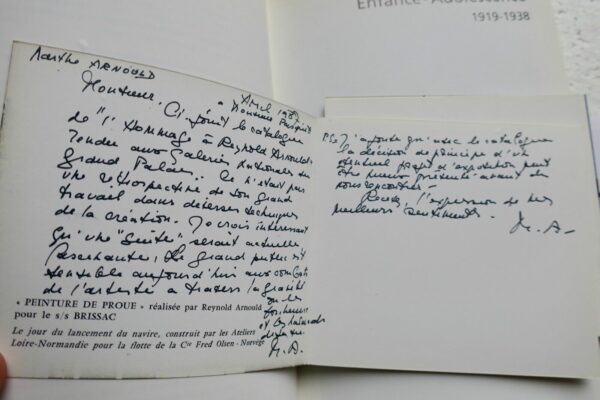 Enfance-Adolescence
1919-1938
Marthe ARNOULD
Avril 198
à Monsieur
Monsieur, Ci-joint le catalogue
de "l'Hommage à Reynold Arnould"
rendu aux Galeries Nationales du
Grand Palais. Ce n'était pas
une rétrospective de son grand
travail dans diverses techniques
de la création. Je crois intéressant
qu'une "suite" serait actuelle
. Le grand public est
sensible aujourd'hui aux combats
de l'artiste à travers la gravité
ou les
bonheurs
et
de la vie
M. A.
« PEINTURE DE PROUE » réalisée par Reynold Arnould
pour le s/s BRISSAC
Le jour du lancement du navire, construit par les Ateliers
Loire-Normandie pour la flotte de la Cie Fred Olsen - Norvège
J'ajoute qu'avec le catalogue
la décision de principe d'un
éventuel projet d'exposition peut
être mieux présenté avant de
nous rencontrer -
l'expression de mes
meilleurs sentiments.
M. A.